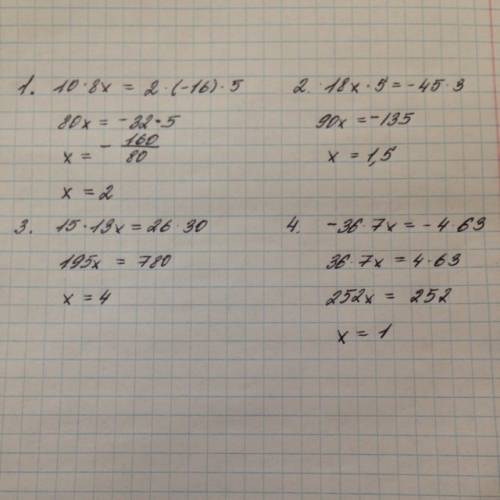 1. 10·8x = 2·(-16)·5
80x = -32·5
x = - 160/80
x = 2
2. 18x·5 = -45·3
90x = -135
x = 1,5
3. 15·13x = 26·30
195x = 780
x = 4
4. -36·7x = -4·63
36·7x = 4·63
252x = 252
x = 1